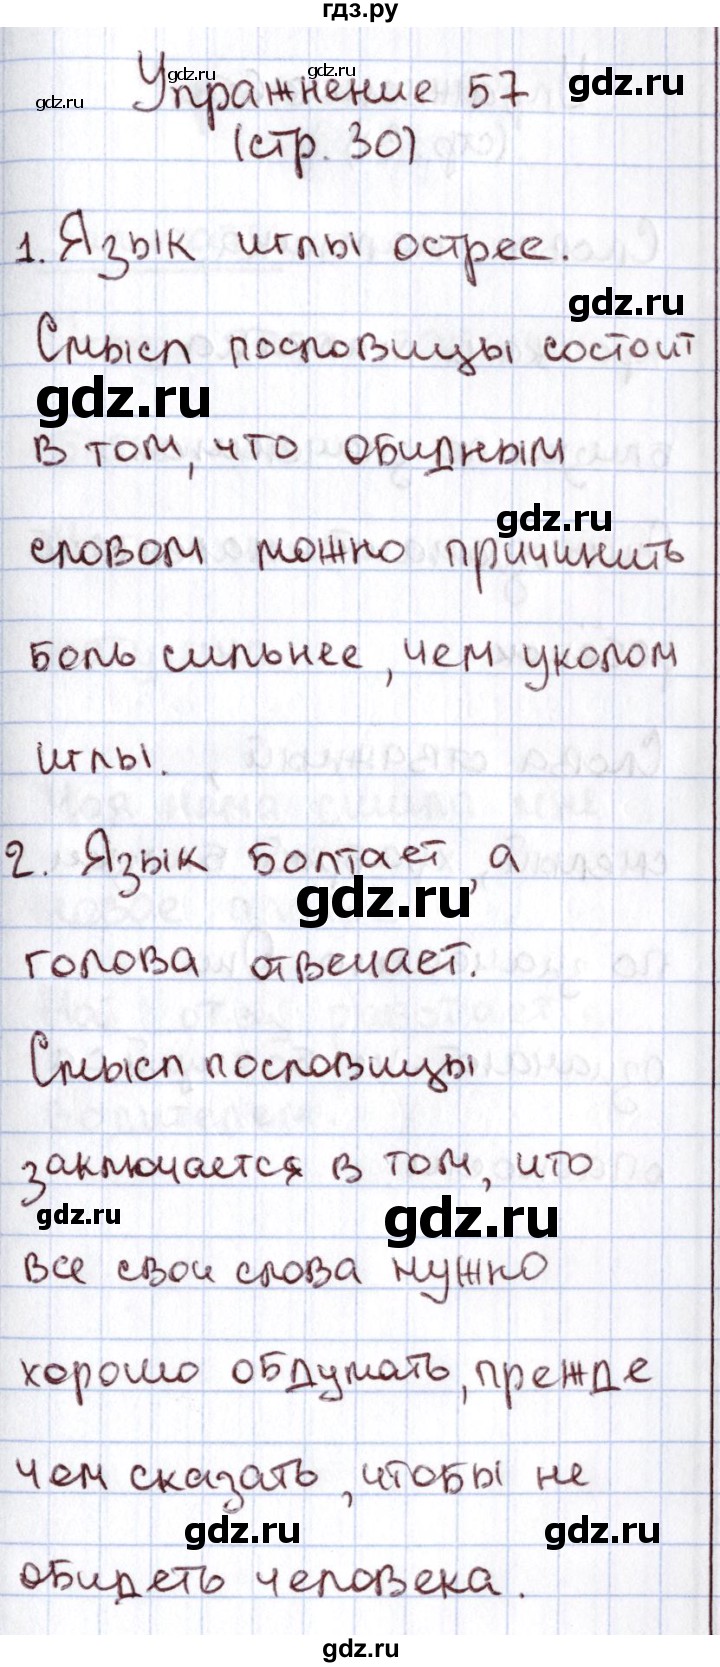 гдз.ру
Упражнение 57
gdz.ru
gdz.ru
gdz.ru
gdz.ru
(стр. 30)
1. Язык иглы острее.
gdz.ru
Смысл пословицы состоит
gdz.ru
в том, что обидным
gdz.ru
словом можно причинить
боль сильнее, чем уколом
иглы.
2. Язык болтает, а
gdz.ru
голова отвечает.
Смысл пословицы
заключается в том, что
gdz.ru
gdz.ru
все свои слова нужно
хорошо обдумать, прежде
чем сказать, чтобы не
gdz.ru
gdz.ru
обидеть человека.
gdz.ru